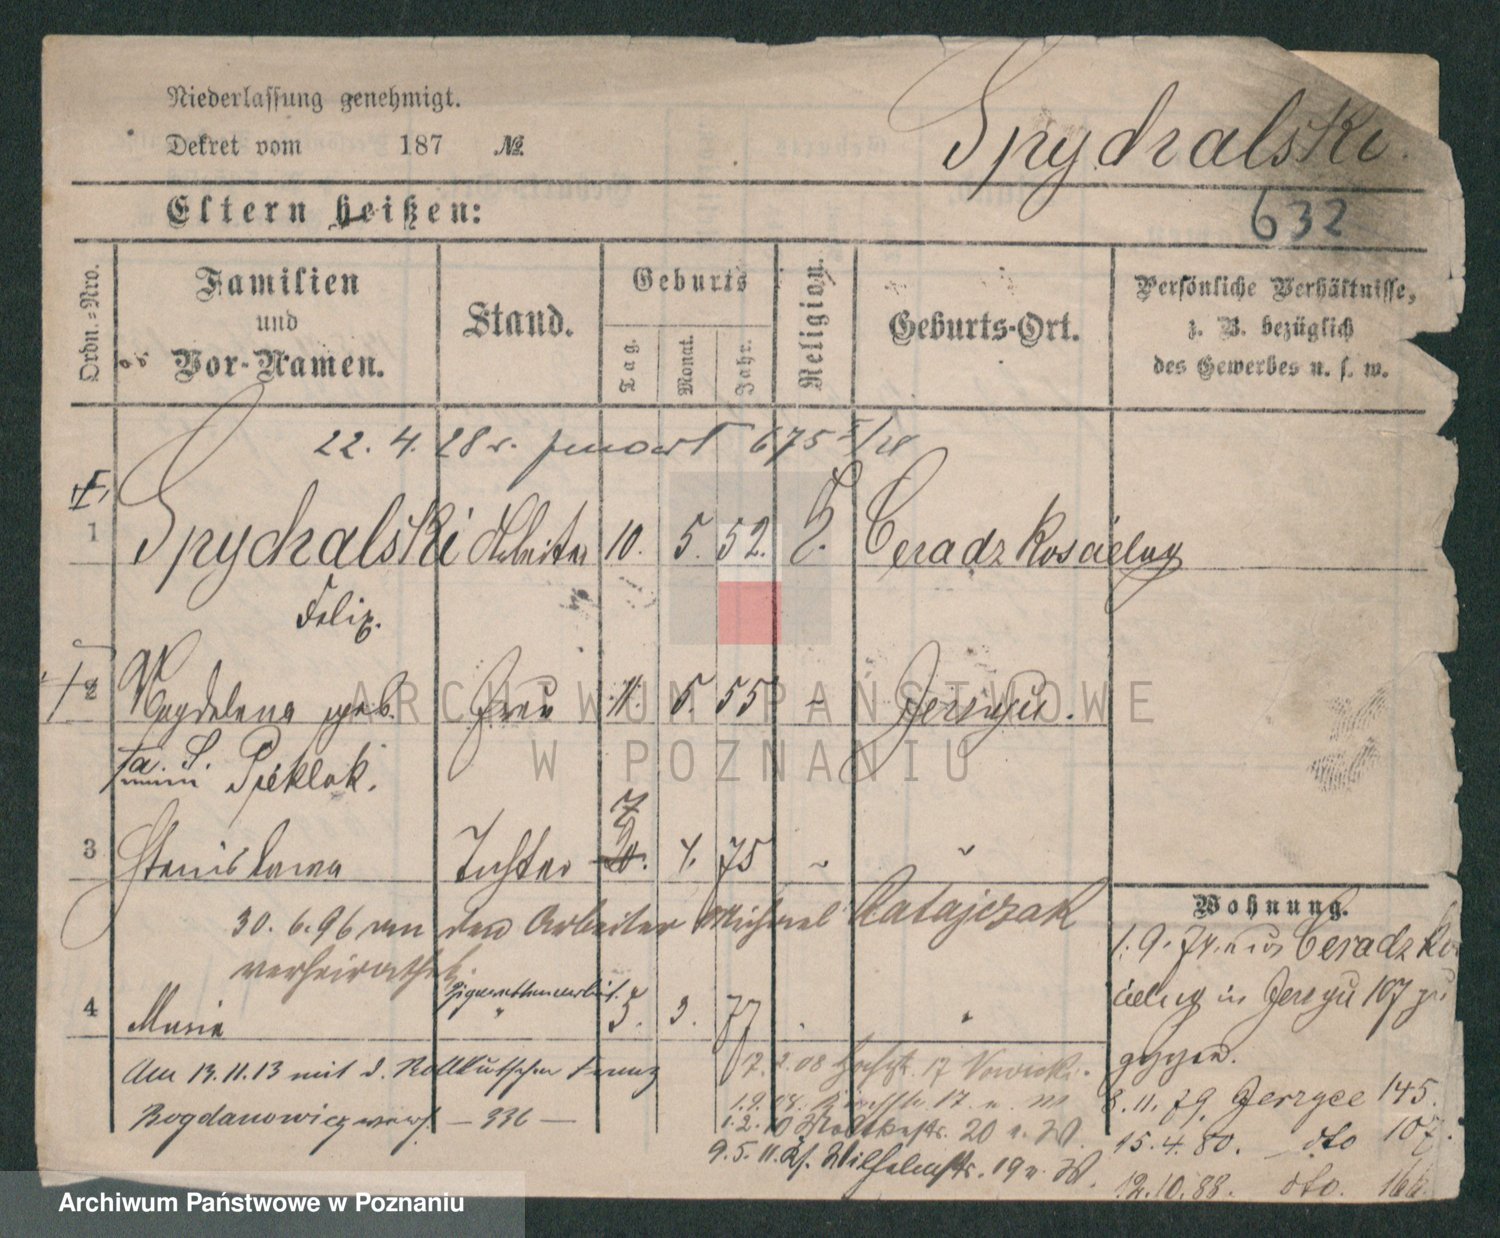 Niederlassung genehmigt.
Spychalski.
Dekret vom 187 №
Eltern heißen:
632
Ordn.-Nro.
Familien
und
Vor-Namen.
Stand.
Geburts
Tag.
Monat.
Jahr.
Religion.
Geburts-Ort.
Persönliche Verhältnisse,
z. B. bezüglich
des Gewerbes u. s. w.
22. 4. 28 675
1 Spychalski Arbeiter 10. 5. 52. Ceradz Kościelny
Felix.
2 Magdalena geb. Frau 11. 5. 55 Jerzyce.
Pieklak.
7
3 Stanislawa Tochter 20. 4. 75
30. 6. 96 an den Arbeiter Michael Ratajczak
verheirathet
Zigarettenarbeit.
4 Maria 5. 3. 77
Am 13.11.13 mit d. Rollkutscher Franz
Bogdanowicz verh. — 336 —
Wohnung.
1. 9. 74. aus Ceradz Ko
cielny in Jerzyce 107 zu
gezogen.
8. 11. 79. Jerzyce 145.
15. 4. 80. dto 107.
12. 10. 88. dto. 166
17. 2. 08 17 Nowicki.
1. 9. 08. 17. u. W
1. 2. 10 20 u. W.
9. 5. 11. Wilhelmstr. 19 u. W.
ARCHIWUM PAŃSTWOWE
W POZNANIU
Archiwum Państwowe w Poznaniu